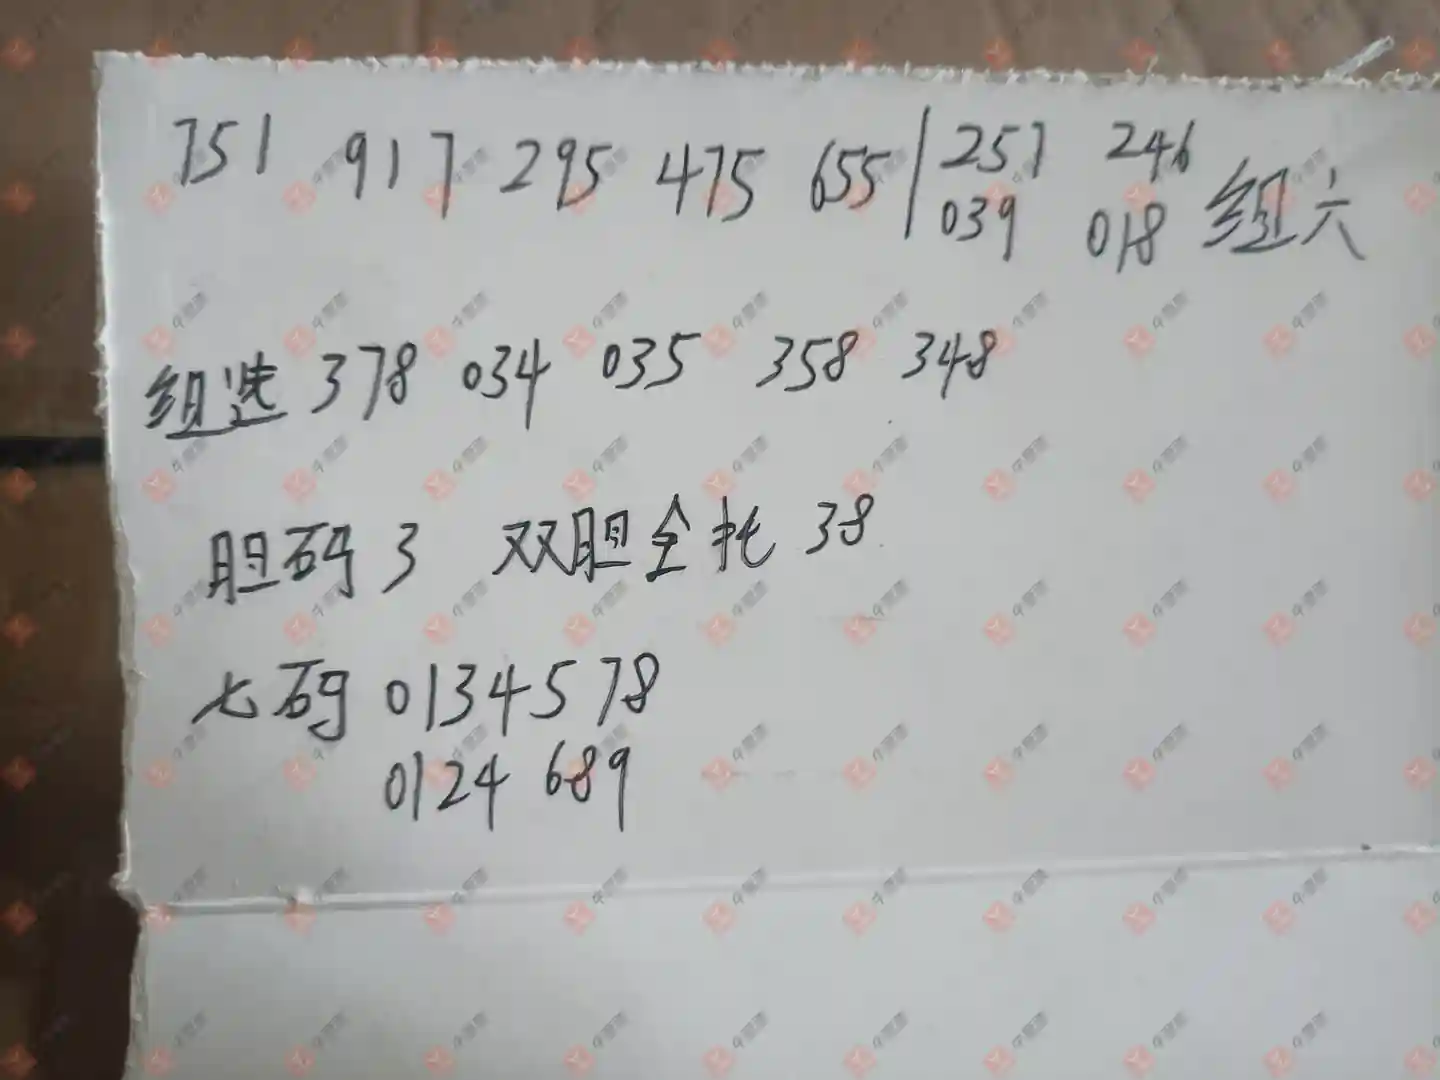 751 917 295 475 655 | 257 246
039 018 组六
组选 378 034 035 358 348
胆码 3 双胆全托 38
七码 0134578
0124689